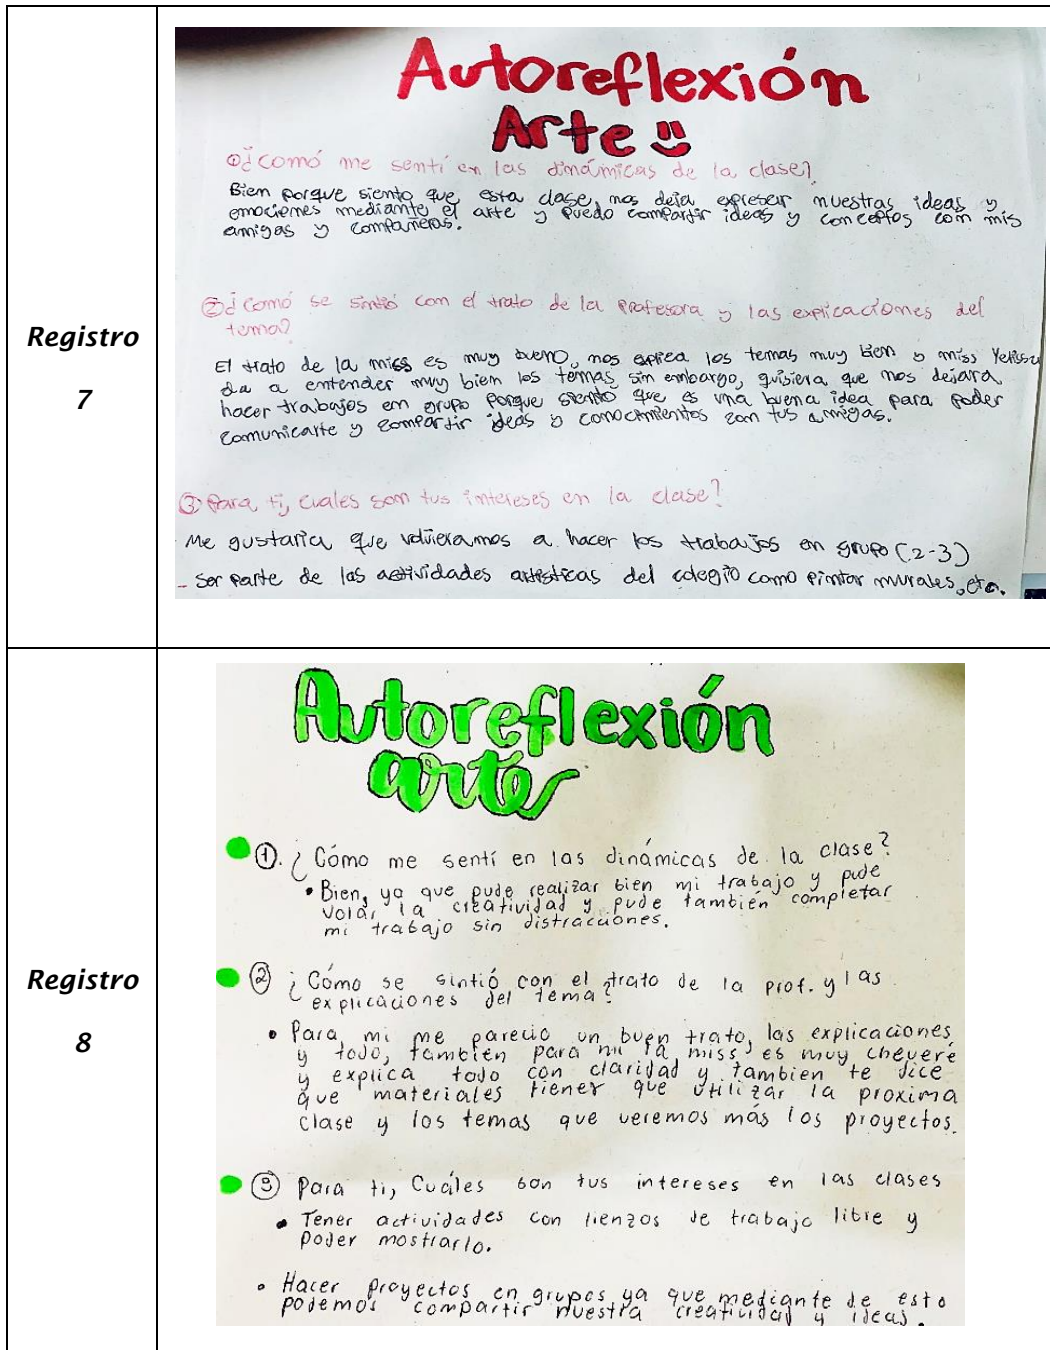 Registro
7
Autoreflexión
Arte
① ¿comó me sentí en las dinámicas de la clase?
Bien porque siento que esta clase, nos deja expresar nuestras ideas y
emociones mediante el arte y puedo compartir ideas y conceptos con mis
amigas y compañeras.
② ¿comó se sintió com el trato de la profesora y las explicaciones del
tema?
El trato de la miss es muy bueno, nos explica los temas muy bien y miss
da a entender muy bien los temas, sin embargo, quisiera que nos dejara
hacer trabajos en grupo porque siento que es una buena idea para poder
comunicarte y compartir ideas y conocimientos con tus amigas.
③ Para ti, cuales son tus intereses en la clase?
Me gustaria que volvieramos a hacer los trabajos en grupo (2-3)
- Ser parte de las actividades artisticas del colegio como pintar murales, etc.
Registro
8
Autoreflexión
arte
①. ¿Cómo me sentí en las dinámicas de la clase?
• Bien, ya que pude realizar bien mi trabajo y pude
volar la creatividad y pude también completar
mi trabajo sin distracciones.
② ¿Cómo se sintió con el trato de la prof. y las
explicaciones del tema?
• Para mi me parecio un buen trato, las explicaciones
y todo, también para mi la miss es muy chevere
y explica todo con claridad y tambien te dice
que materiales tienes que utilizar la proxima
clase y los temas que veremos más los proyectos.
③ Para ti, Cuáles son tus intereses en las clases
• Tener actividades con lienzos de trabajo libre y
poder mostrarlo.
• Hacer proyectos en grupos ya que mediante de esto
podemos compartir nuestra creatividad y ideas.